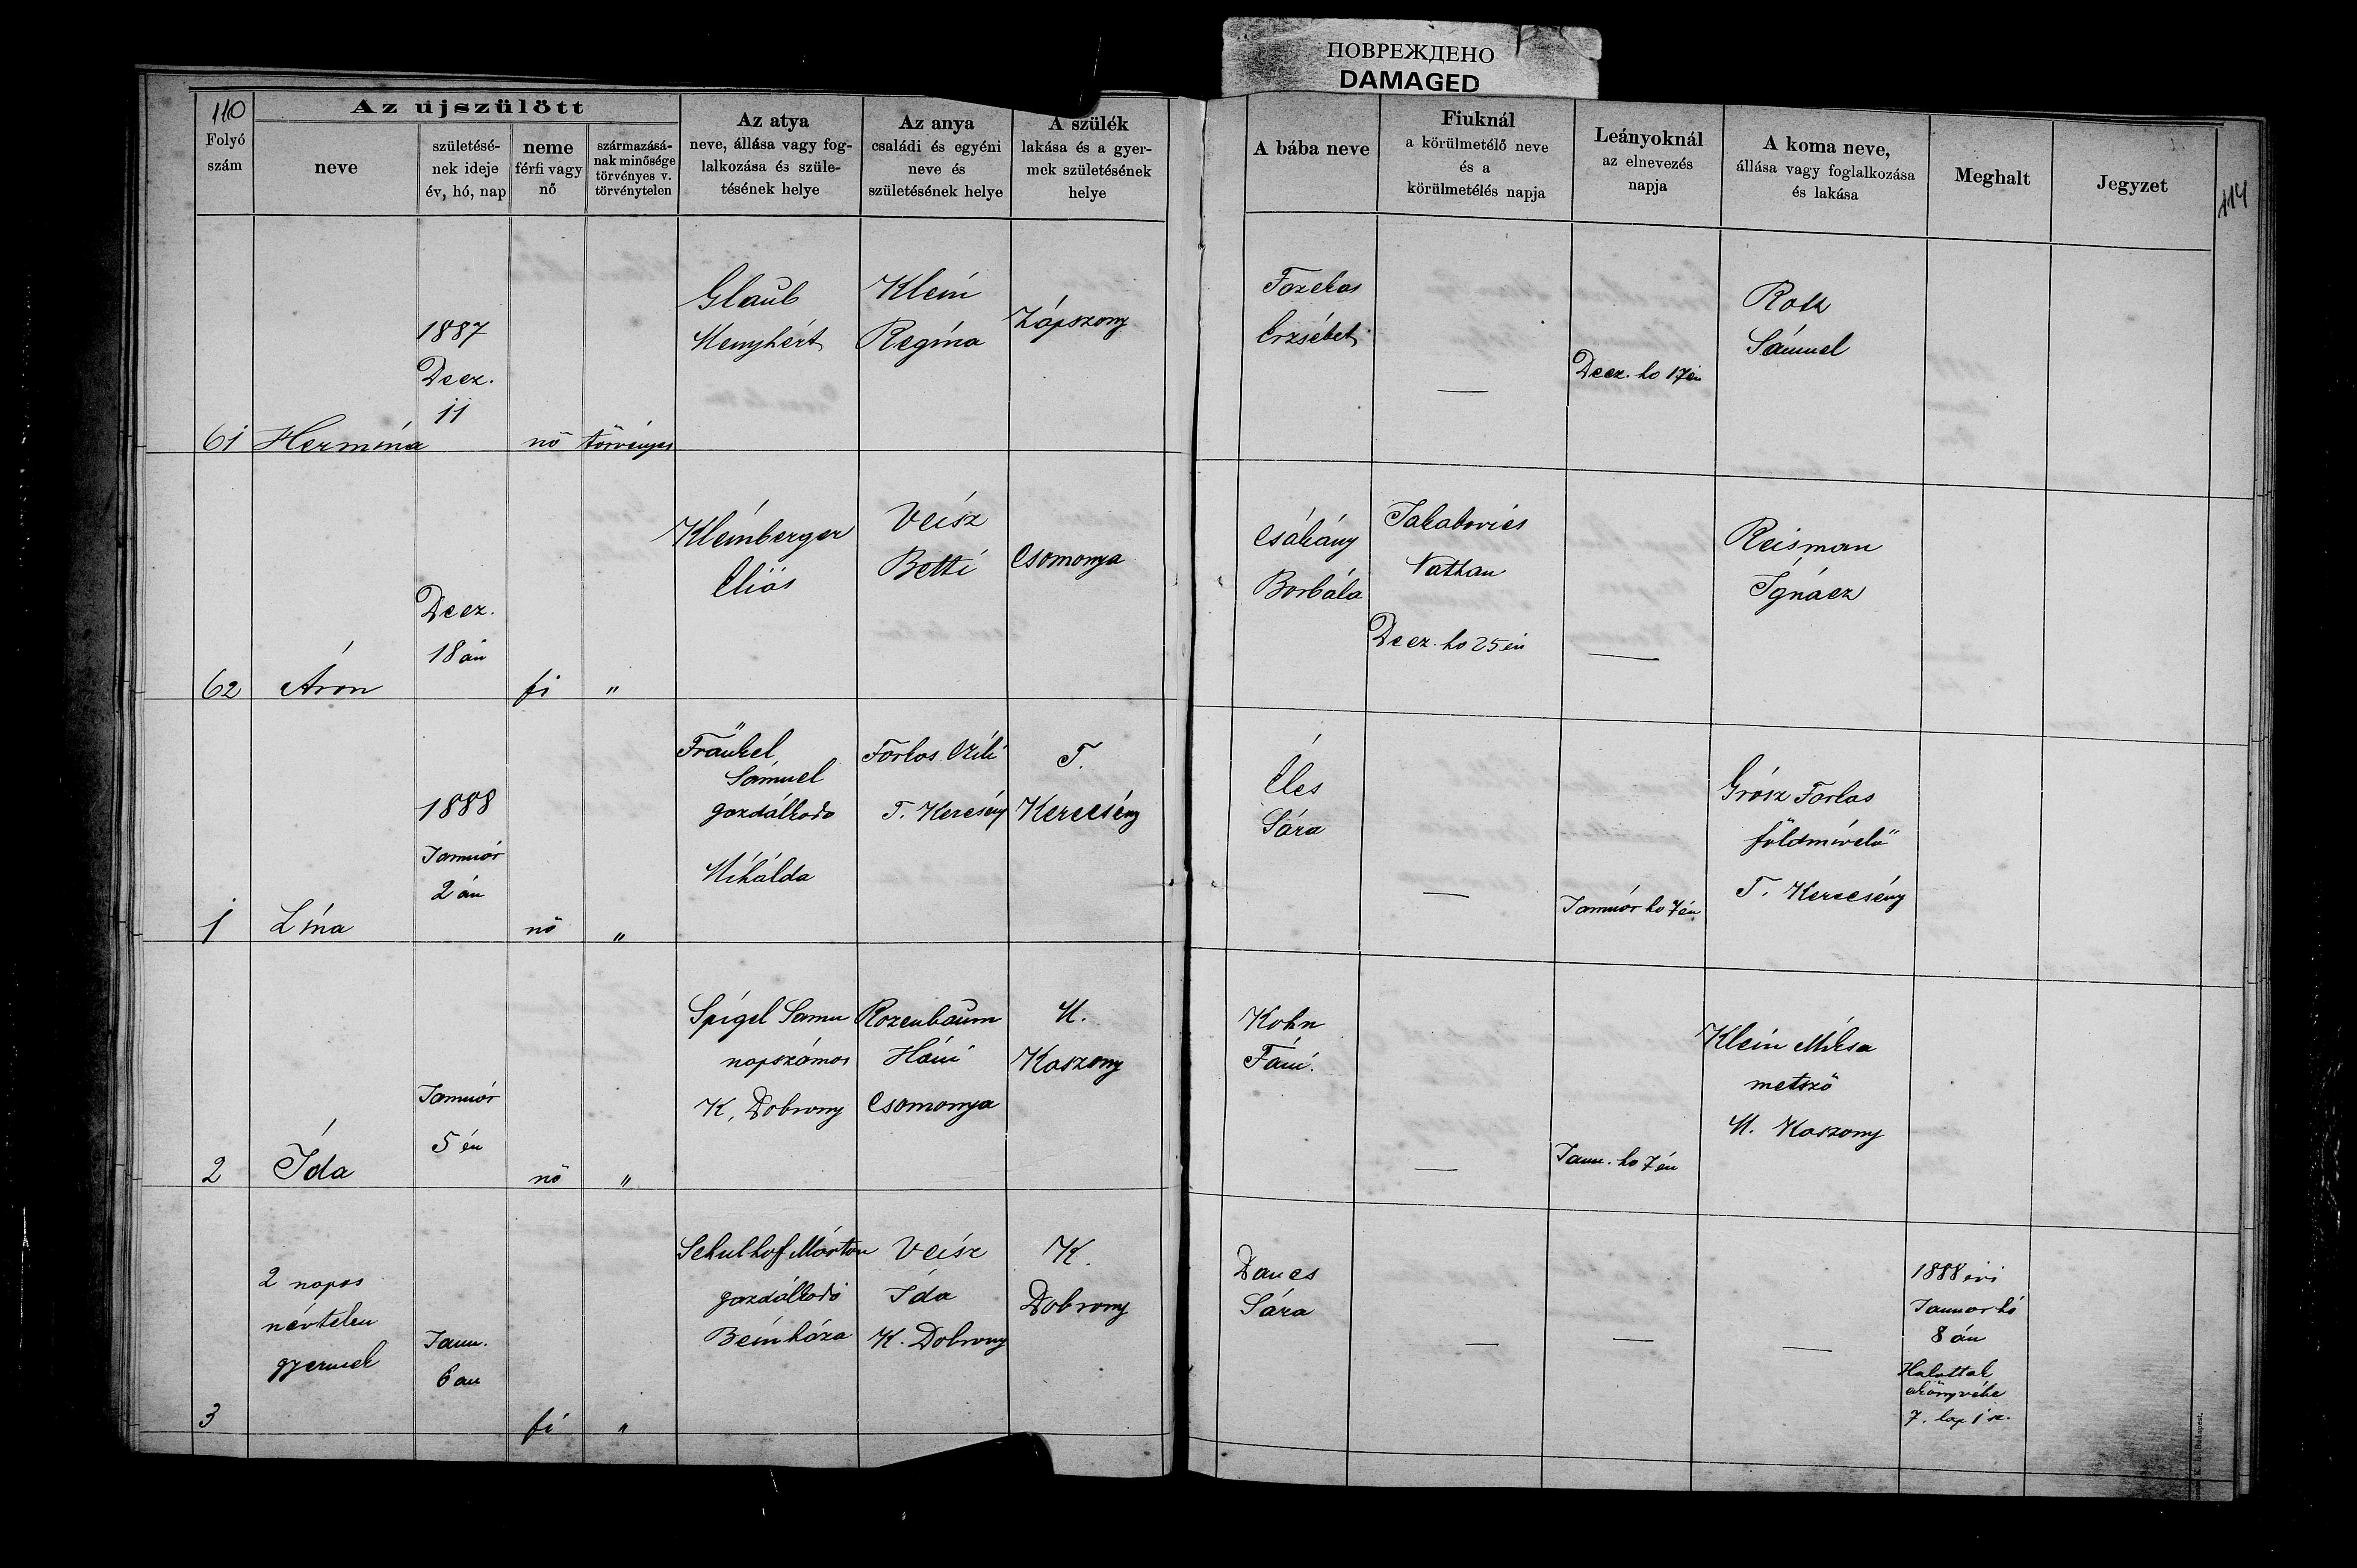 ПОВРЕЖДЕНО
DAMAGED
110
114
Az ujszülött
Folyó
szám
neve
születésé-
nek ideje
év, hó, nap
neme
férfi vagy
nő
származásá-
nak minősége
törvényes v.
törvénytelen
Az atya
neve, állása vagy fog-
lalkozása és szüle-
tésének helye
Az anya
családi és egyéni
neve és
születésének helye
A szülék
lakása és a gyer-
mek születésének
helye
A bába neve
Fiuknál
a körülmetélő neve
és a
körülmetélés napja
Leányoknál
az elnevezés
napja
A koma neve,
állása vagy foglalkozása
és lakása
Meghalt
Jegyzet
61
Hermina
1887
Decz.
11
nő
törvényes
Glaub
Menyhért
Klein
Regina
Zápszony
Fazekas
Erzsébet
—
Decz. ho 17én
Roth
Sámuel
62
Áron
Decz.
18 án
fi
"
Kleinberger
Eliás
Veisz
Betti
Csomonya
Csákány
Borbála
Jakabovics
Nathan
Decz. ho 25 én
—
Reisman
Ignácz
1
Lina
1888
Január
2 án
nő
"
Fränkel
Sámuel
gazdálkodo
Mihálda
Farkas
T. Kercsény
T.
Kerecsény
Éles
Sára
—
Január ho 7én
Grósz Farkas
földmivelő
T. Kerecsény
2
Ida
Január
5 én
nő
"
Spigel Samu
napszámos
K. Dobrony
Rozenbaum
Háni
Csomonya
M.
Kaszony
Kohn
Fáni.
—
Jann. ho 7én
Klein Miksa
metsző
M. Kaszony
3
2 napos
névtelen
gyermek
Jann.
6 an
fi
"
Schulhof Márton
gazdálkodó
Veisz
Ida
K. Dobrony
K.
Dobrony
Dancs
Sára
—
—
—
1888 évi
Januar hó
8 án
Halottak
könyvébe
7. lap 1 sz.